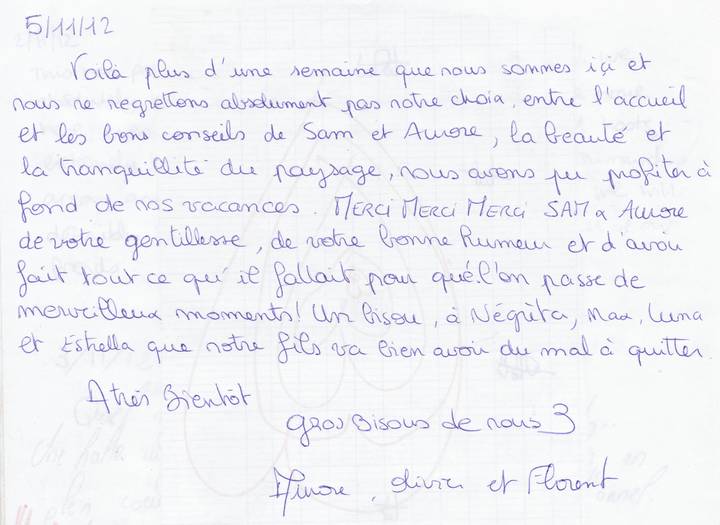 5/11/12
Voilà plus d'une semaine que nous sommes içi et
nous ne regrettons absolument pas notre choix, entre l'accueil
et les bons conseils de Sam et Aurore, la beauté et
la tranquillité du paysage, nous avons pu profiter à
fond de nos vacances. MERCI MERCI MERCI SAM & AURORE
de votre gentillesse, de votre bonne humeur et d'avoir
fait tout ce qu'il fallait pour que l'on passe de
merveilleux moments! Un bisou, à Négrita, Max, Luna
et Estrella que notre fils va bien avoir du mal à quitter
A très Bientôt
Gros Bisous de nous 3
Olivier et Florent